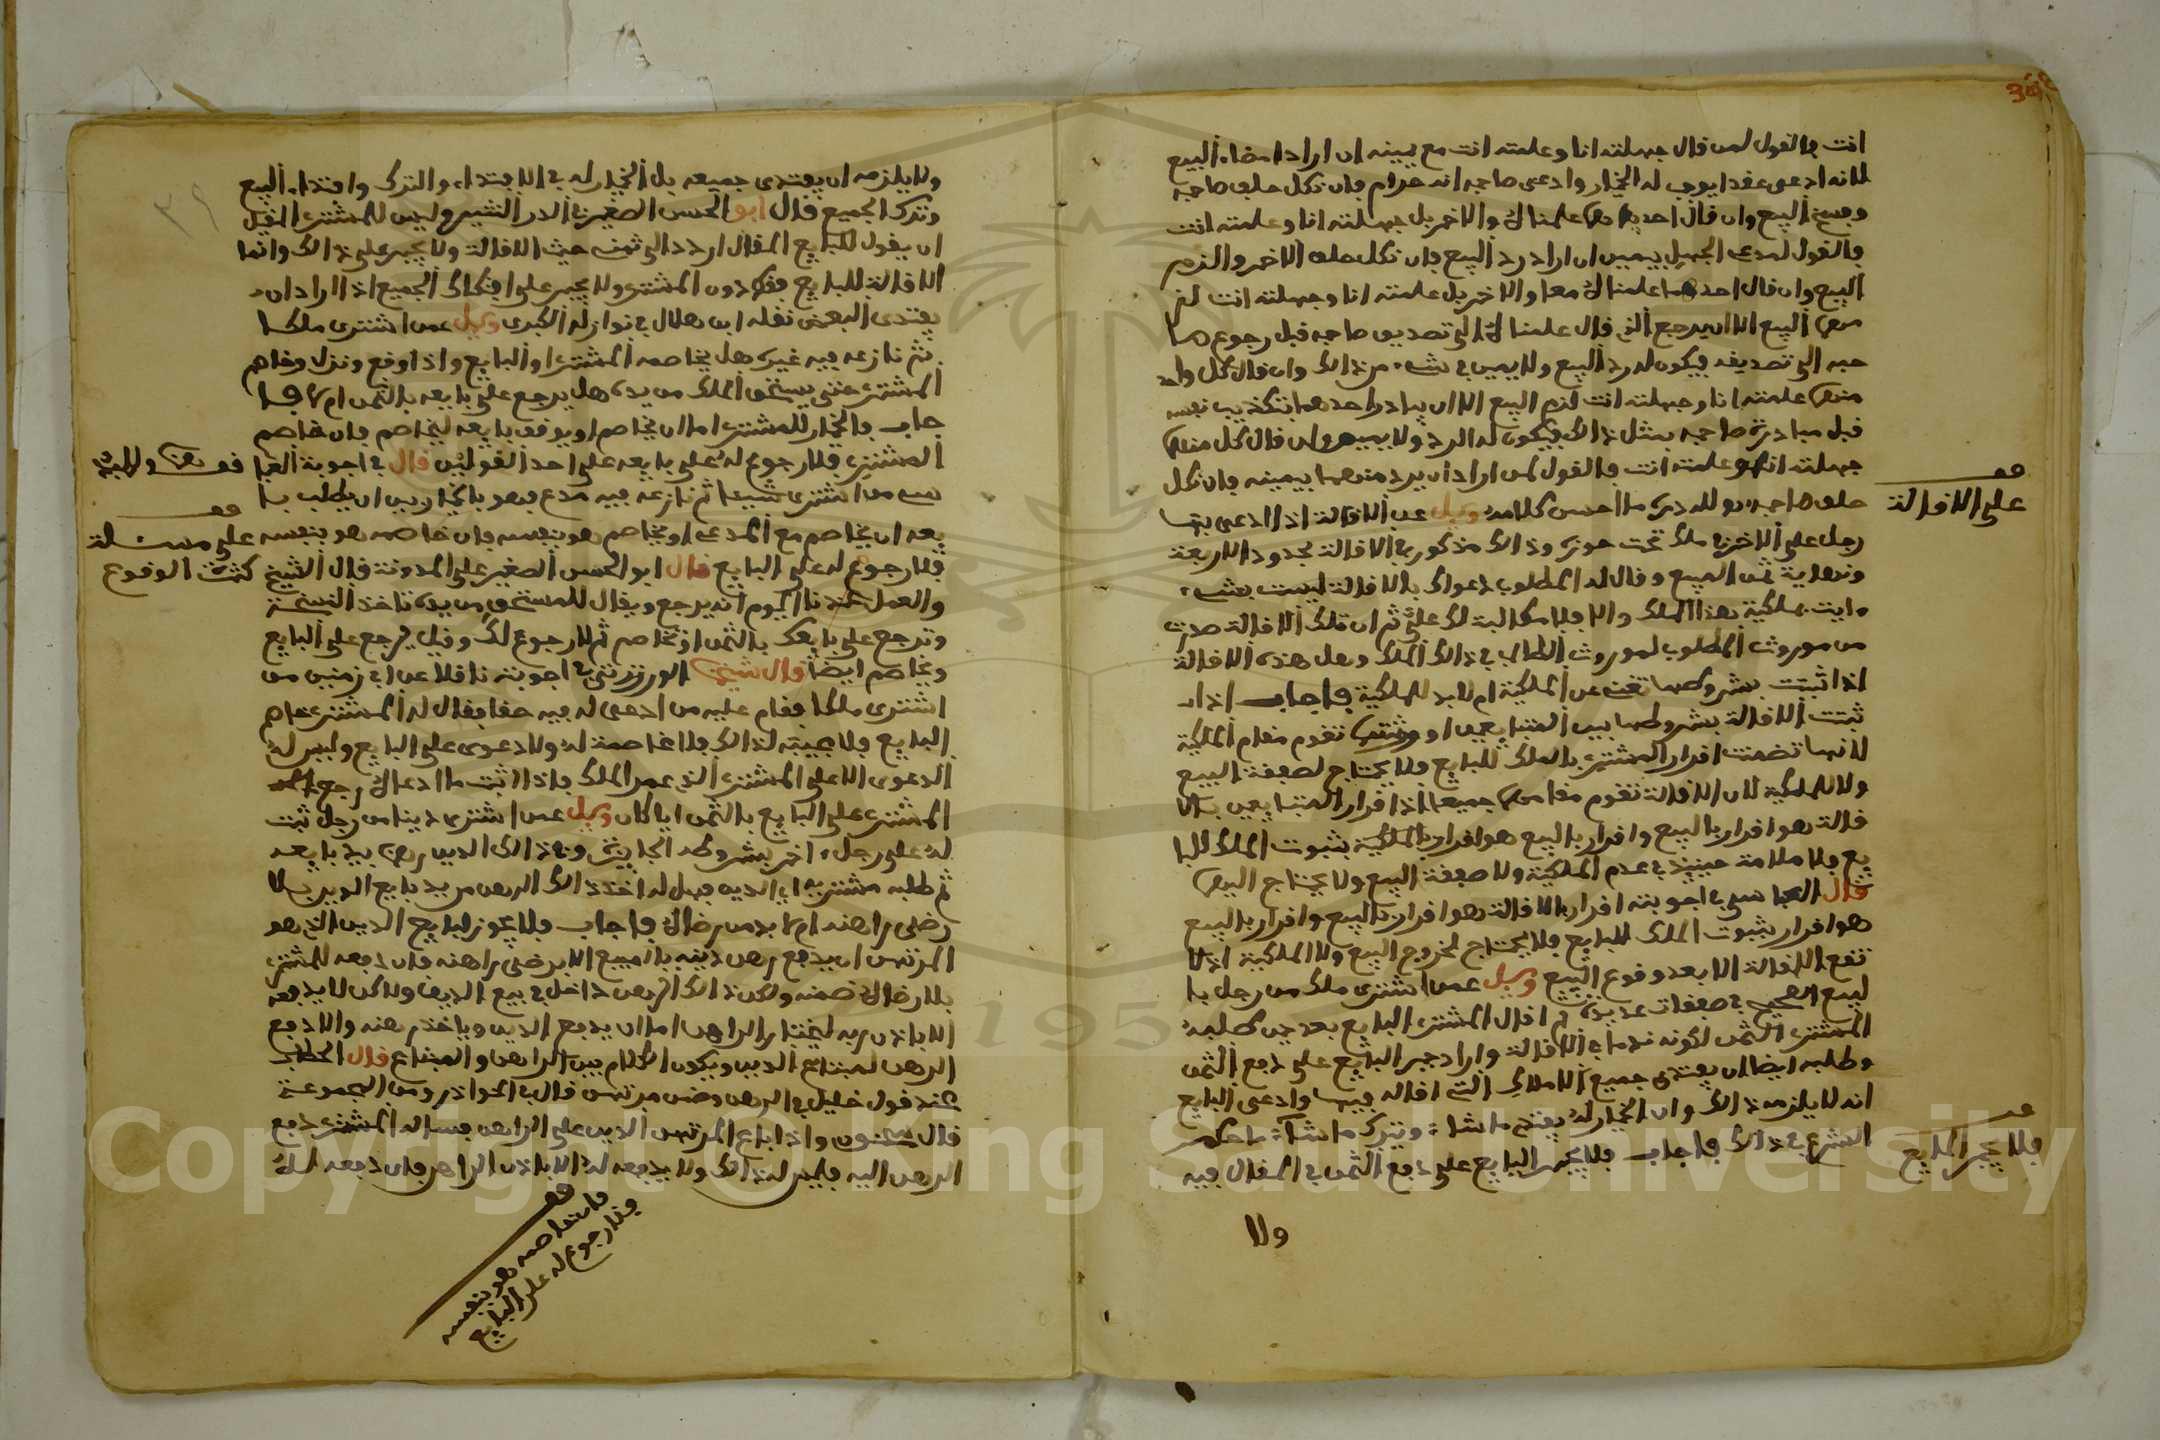 انت فالقول لمن قال جهلته انا وعلمته انت مع يمينه ان اراد امضاء البيع
لانه ادعى عقدا يوجب له الخيار وادعى صاحبه انه حرام فان نكل حلف صاحبه
وفسخ البيع وان قال احدهما علمناه والاخر بل جهلته انا وعلمته انت
فالقول لمدعى الجهل بيمين ان اراد رد البيع فان نكل حلف الاخر والزم
البيع وان قال احدهما علمناه معا والاخر بل علمته انا وجهلته انت لزم
البيع الا ان يرجع الذي قال علمناه الى تصديق صاحبه قبل رجوع صا
حبه الى تصديقه فيكون له رد البيع ولا يمين في شيء من ذالك وان قال كل واحد
منهما علمته انا وجهلته انت لزم البيع الا ان يبادر احدهما بتكذيب نفسه
قبل مبادرة صاحبه بمثل ذالك فيكون له الرد ولا يمين وان قال كل منهما
جهلته انا وعلمته انت فالقول لمن اراد ان يرد منهما بيمينه فان نكل
حلف صاحبه فلله دره ما احسن كلامه وسيل عن الاقالة اذا ادعى بها
رجل على الاخر في ملك تحت حوزه وذالك مذكور في الاقالة بحدود الاربعة
ونهاية ثمن المبيع وقال له المطلوب دعواك بالاقالة ليست بشيء
ايت بملكية هذا الملك والا فلا مطالبة لك علي ثم ان تلك الاقالة صدرت
من موروث المطلوب لموروث الطالب في ذالك الملك وهل هذه الاقالة
اذا ثبتت بشروطها تغني عن الملكية ام لا بد للملكية فاجاب اذا
ثبتت الاقالة بشروطها بين المتبايعين او ورثتهما تقوم مقام الملكية
لانها تضمنت اقرار المشتري بالملك للبايع فلا يحتاج لصفقة البيع
ولا للملكية لان الاقالة تقوم مقامهما جميعا اذا اقرار المتبايعين بالا
قالة هو اقرار بالبيع واقرار بالبيع هو اقرار بالملكية بثبوت الملك للبا
يع فلا ملامة حينيذ في عدم الملكية ولا صفقة البيع ولا يحتاج اليهما
قال العباسي في اجوبته اقرار بالاقالة هو اقرار بالبيع واقرار بالبيع
هو اقرار بثبوت الملك للبايع فلا يحتاج لخروج البيع ولا الملكية اذ لا
تقع الاقالة الا بعد وقوع البيع وسيل عمن اشترى ملك من رجل با
لبيع الصحيح في صفقات عديدة ثم اقال المشتري البايع بعد حين كلمه
المشتري الثمن لكونه ندما في الاقالة واراد جبر البايع على دفع الثمن
وطلبه ايضا ان يفتدى جميع الاملاك التي اقاله فيها وادعى البايع
انه لا يلزمه ذالك وان الخيار له يفتدي ما شاء ويترك ما شاء ما حكم
الشرع في ذالك فاجاب فلا يجبر البايع على دفع الثمن في المقال فيه
ولا
قف
على الاقالة
قف
فلا يجبر البايع
ولا يلزمه ان يفتدى جميعه بل الخيار له في الافتداء والترك وافتداء البيع
وترك الجميع قال ابو الحسن الصغير في الدر النثير وليس للمشتري المقيل
ان يقول للبايع المقال اردد الى ثمني حيث الاقالة ولا يجبر على ذالك وانما
الاقالة للبايع فقط دون المشتري ولا يجبر على افتكاك الجميع اذا اراد ان
يفتدى البعض نقله ابن هلال في نوازله الكبرى وسيل عمن اشترى ملكا
ثم نازعه فيه غيره هل يخاصمه المشتري او البايع واذا وقع ونزل وخاصم
المشتري حتى يستحق الملك من يده هل يرجع على بايعه بالثمن ام لا فا
جاب فالخيار للمشتري اما ان يخاصم او يوقف بايعه ليخاصم فان خاصم
المشتري فلا رجوع له على بايعه على احد القولين قال في اجوبة العبا
سي من اشترى شيئا ثم نازعه فيه مدع فهو بالخيار بين ان يطلب با
يعه ان يخاصم مع المدعى او يخاصم هو بنفسه فان خاصمه هو بنفسه
فلا رجوع له على البايع قال ابو الحسن الصغير على المدونة قال الشيخ
والعمل عندنا اليوم انه يرجع ويقال للمستحق من يده تاخذ النسخة
وترجع على بايعك بالثمن او تخاصم ثم لا رجوع لك وقيل يرجع على البايع
ويخاصم ايضا قال شيخنا الورززتي في اجوبته ناقلا عن ابي زمنين من
اشترى ملكا فقام عليه من ادعى له فيه حقا فقال له المشتري خاصم
البايع فلا يجيبه لذالك فلا مخاصمة له ولا دعوى على البايع وليس له
الدعوى الا على المشتري الذي عمر الملك فاذا اثبت ما ادعاه رجع
المشتري على البايع بالثمن ايا كان وسيل عمن اشترى دينا من رجل ثبت
له على رجل اخر بشروطه الجايزة وفي ذالك الدين رهن بيد بايعه
ثم طلبه مشتريه اي الدين فهل له اخذ ذالك الرهن من يد بايع الدين بلا
رضى راهنه ام لا بد من رضاه فاجاب فلا يجوز لبايع الدين الذي هو
المرتهن ان يدفع رهن دينه بالمبيع الا برضى راهنه فان دفعه للمشتري
بلا رضاه ضمنه ولكن ذالك الرهن داخل في بيع الدين ولاكن لا يدفعه
الا باذن ربه ليختار الراهن اما ان يدفع الدين وياخذ رهنه والا دفع
الرهن لمبتاع الدين ويكون الكلام بين الراهن والمبتاع قال الحطاب
عند قول خليل في الرهن وضمن مرتهن قال في النوادر ومن المجموعة
قال سحنون واذا باع المرتهن الدين على الراهن فساله المشتري دفع
الرهن اليه فليس له ذالك ولا يدفعه له الا باذن الراهن فان دفعه له
قف
على مسئلة
كثرت الوقوع
قف
فان خاصمه هو بنفسه
فلا رجوع له على البايع
Copyright © King Saud University
1957